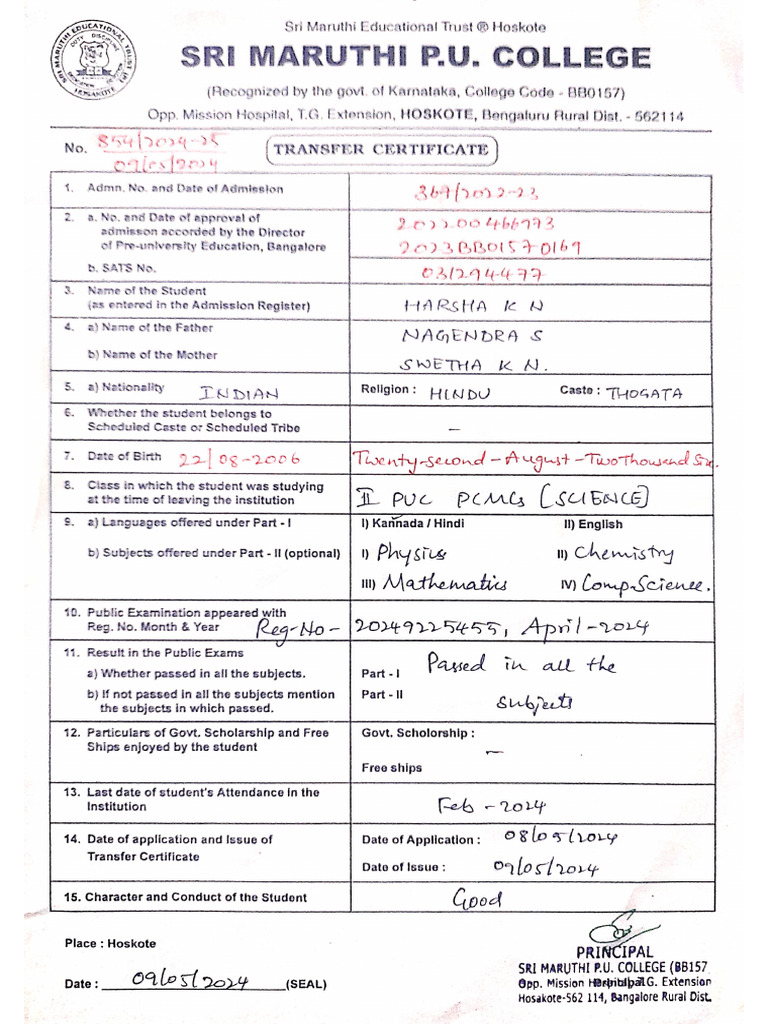 Sri Maruthi Educational Trust ® Hoskote
SRI MARUTHI P.U. COLLEGE
(Recognized by the govt. of Karnataka, College Code - BB0157)
Opp. Mission Hospital, T.G. Extension, HOSKOTE, Bengaluru Rural Dist. - 562114
No. 854/2024-25
09/05/2024
TRANSFER CERTIFICATE
1. Admn. No. and Date of Admission 369/2022-23
2. a. No. and Date of approval of 202200466973
admisson accorded by the Director
of Pre-university Education, Bangalore 2023BB01570169
b. SATS No. 031294477
3. Name of the Student
(as entered in the Admission Register) HARSHA K N
4. a) Name of the Father NAGENDRA S
b) Name of the Mother SWETHA K N.
5. a) Nationality INDIAN Religion : HINDU Caste : THOGATA
6. Whether the student belongs to
Scheduled Caste or Scheduled Tribe –
7. Date of Birth 22/08-2006 Twenty-second-August-TwoThousand Six.
8. Class in which the student was studying
at the time of leaving the institution II PUC PCMCs [SCIENCE]
9. a) Languages offered under Part - I I) Kannada / Hindi II) English
b) Subjects offered under Part - II (optional) I) Physics II) Chemistry
III) Mathematics IV) Comp.Science.
10. Public Examination appeared with
Reg. No. Month & Year Reg-No- 20249225455, April-2024
11. Result in the Public Exams
a) Whether passed in all the subjects. Part - I Passed in all the
b) If not passed in all the subjects mention Part - II subjects
the subjects in which passed.
12. Particulars of Govt. Scholarship and Free Govt. Scholorship :
Ships enjoyed by the student –
Free ships
13. Last date of student's Attendance in the
Institution Feb - 2024
14. Date of application and Issue of Date of Application : 08/05/2024
Transfer Certificate
Date of Issue : 09/05/2024
15. Character and Conduct of the Student Good
Place : Hoskote
PRINCIPAL
SRI MARUTHI P.U. COLLEGE (BB157
Opp. Mission Hospital, T.G. Extension
Principal
Date : 09/05/2024 (SEAL)
Hosakote-562 114, Bangalore Rural Dist.